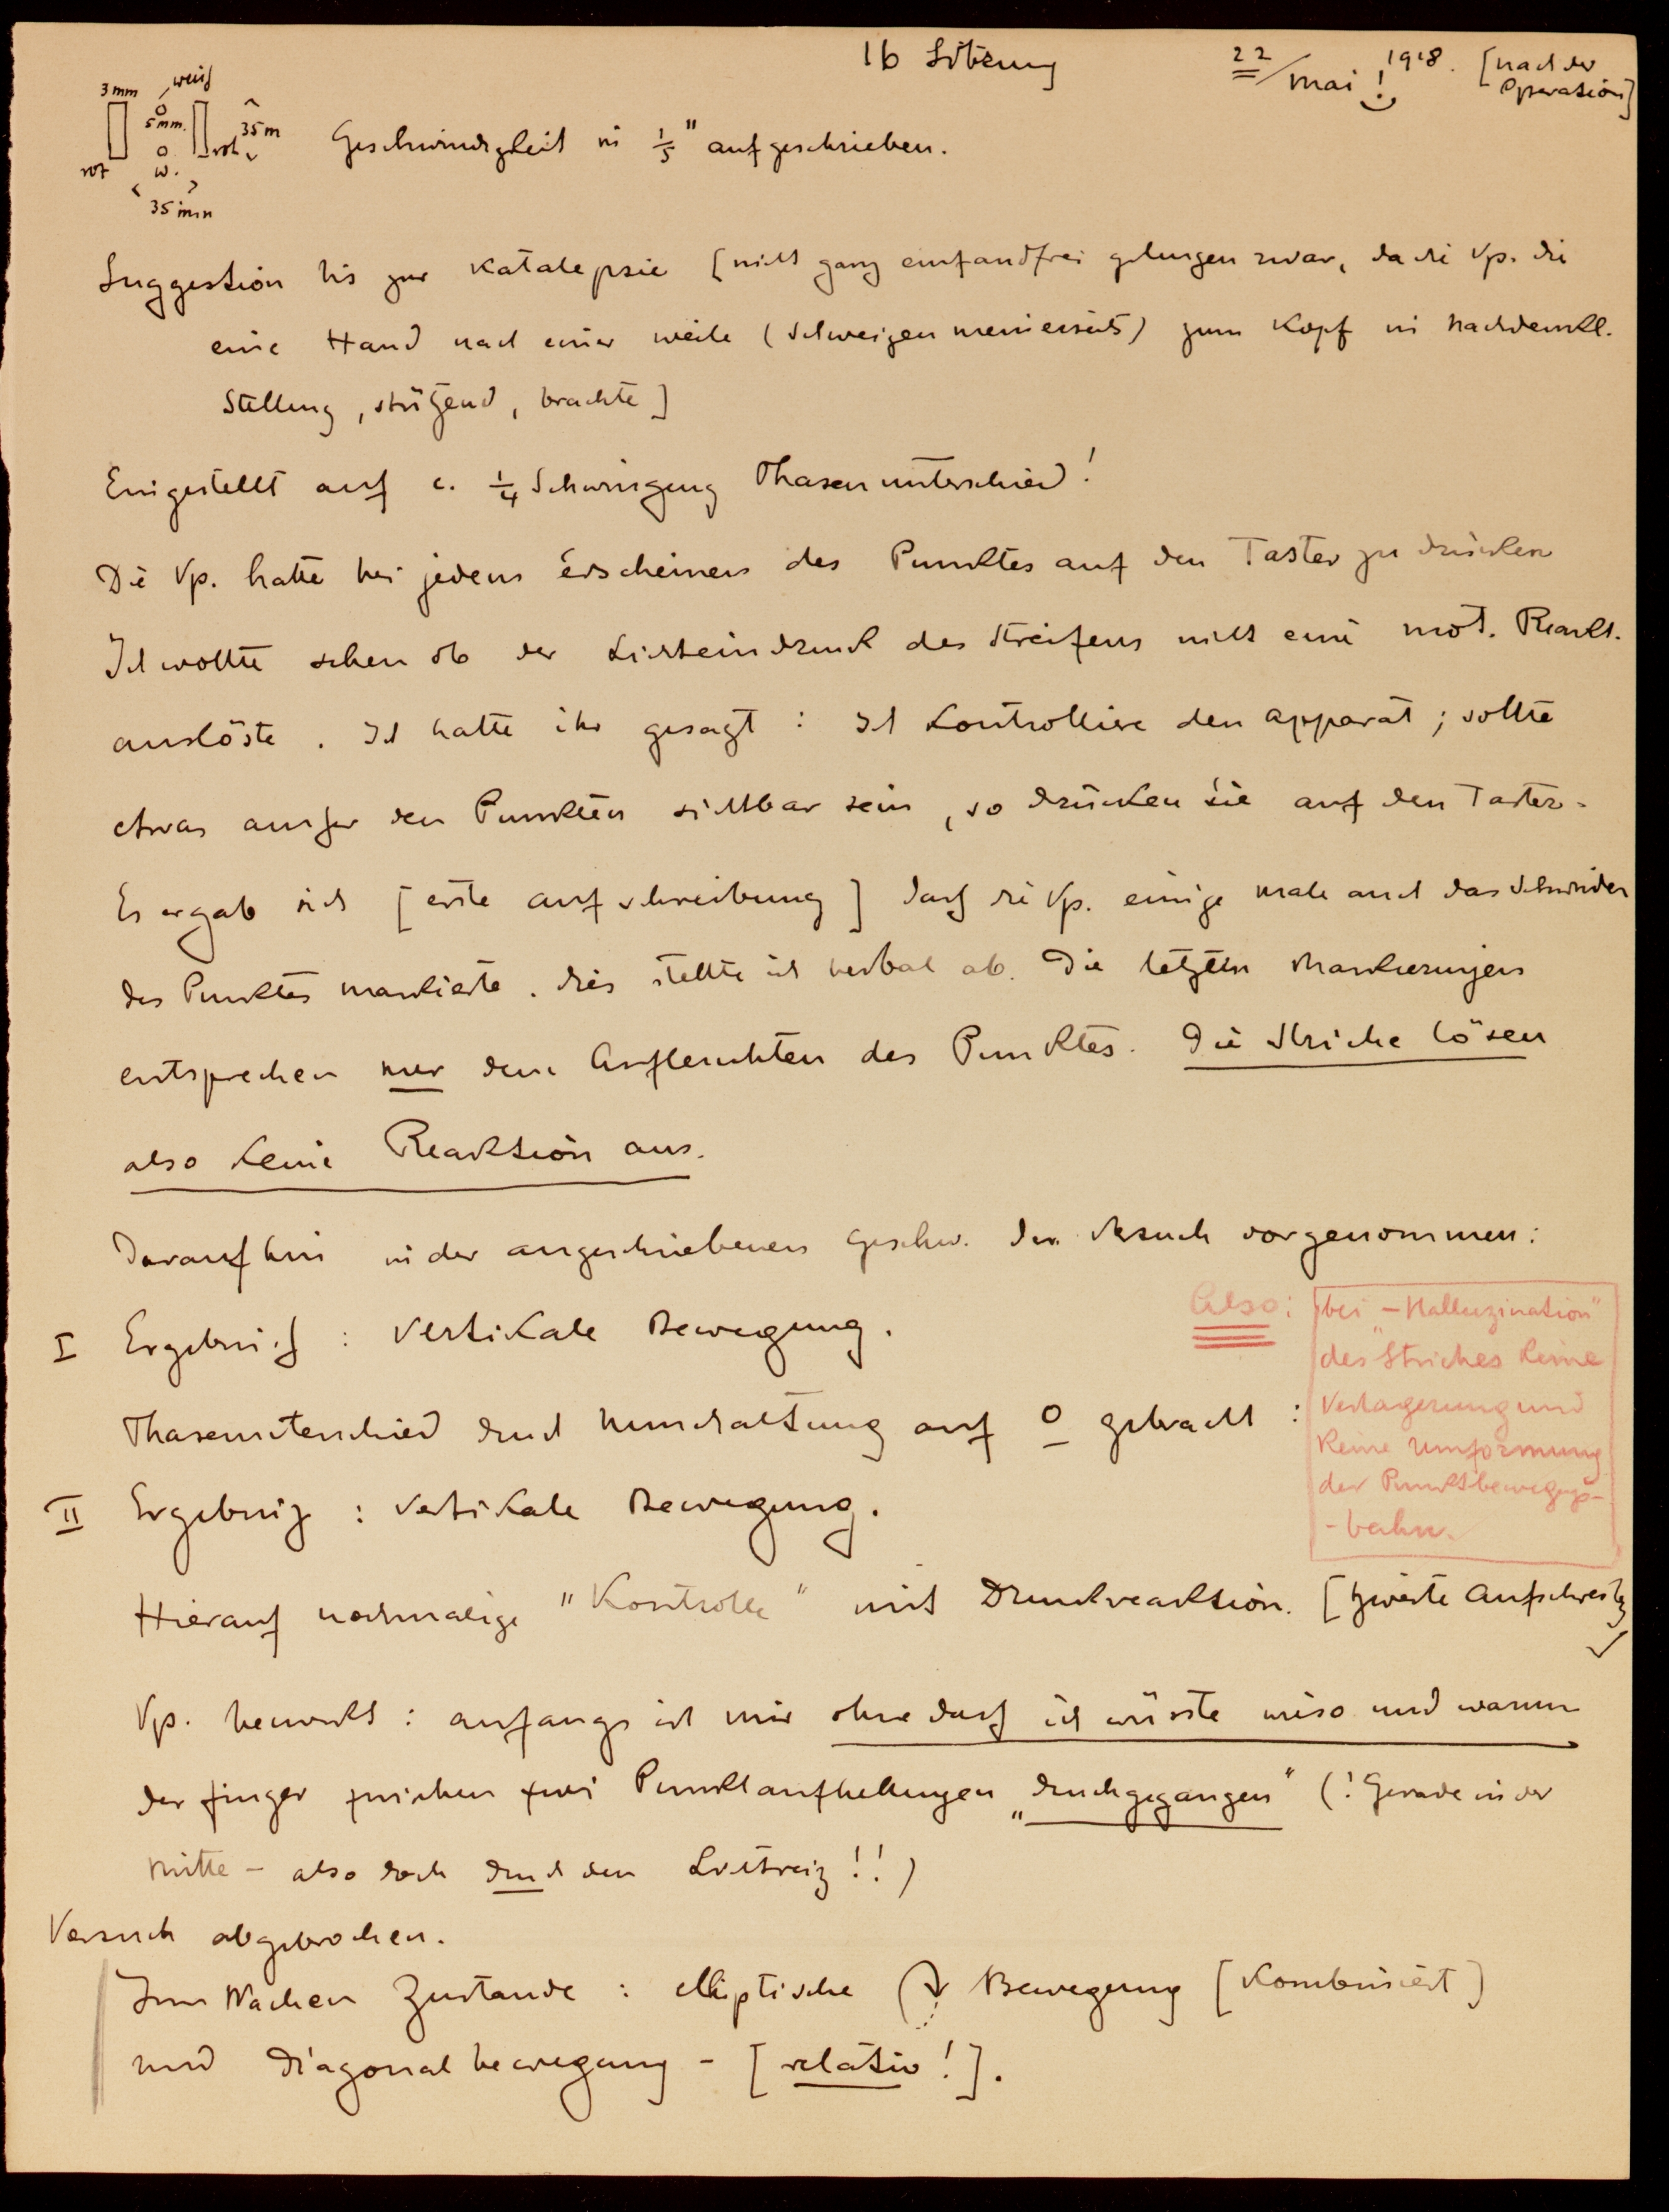 16 Sitzung
22/Mai! 1918. [nach der
Operation]
3mm weiß
5mm. 35m
rot w. rot
35 mm
Geschwindigkeit in 1/5" aufgeschrieben.
Suggestion bis zur Katalepsie [nicht ganz einfandfrei gelungen zwar, da die Vp. die
eine Hand nach einer weile (Schweigen meinerseits) zum Kopf in nachdenkl.
Stellung, stützend, brachte]
Eingestellt auf c. 1/4 Schwingung Phasenunterschied!
Die Vp. hatte bei jedem Erscheinen des Punktes auf den Taster zu drücken
Ich wollte sehen ob der Lichteindruck des Streifens nicht eine mot. Reakt.
auslöste. Ich hatte ihr gesagt: Ich kontrolliere den Apparat; sollte
etwas außer den Punkten sichtbar sein, so drücken Sie auf den Taster.
Es ergab sich [erste Aufschreibung] daß die Vp. einige male auch das Schwinden
des Punktes markierte. Dies stellte ich verbal ab. Die letzten Markierungen
entsprechen nur dem Aufleuchten des Punktes. Die Striche lösen
also keine Reaktion aus.
Daraufhin in der angeschriebenen Geschw. den Versuch vorgenommen:
I Ergebniß: Vertikale Bewegung.
Also: bei "Halluzination"
des Striches keine
Verlagerung und
keine Umformung
der Punktbewegungs-
-bahn.
Phasenunterschied durch Umschaltung auf 0 gebracht:
II Ergebniß: Vertikale Bewegung.
Hierauf nochmalige "Kontrolle" mit Druckreaktion. [zweite Aufschreibg
Vp. bemerkt: anfangs ist mir ohne daß ich wüsste wieso und warum
der Finger zwischen zwei Punktaufhellungen "durchgegangen" (! Gerade in der
Mitte - also doch durch den Lichtreiz!!)
Versuch abgebrochen.
Im Wachen Zustande: elliptische Bewegung [Kombiniert]
und Diagonalbewegung - [relativ!].